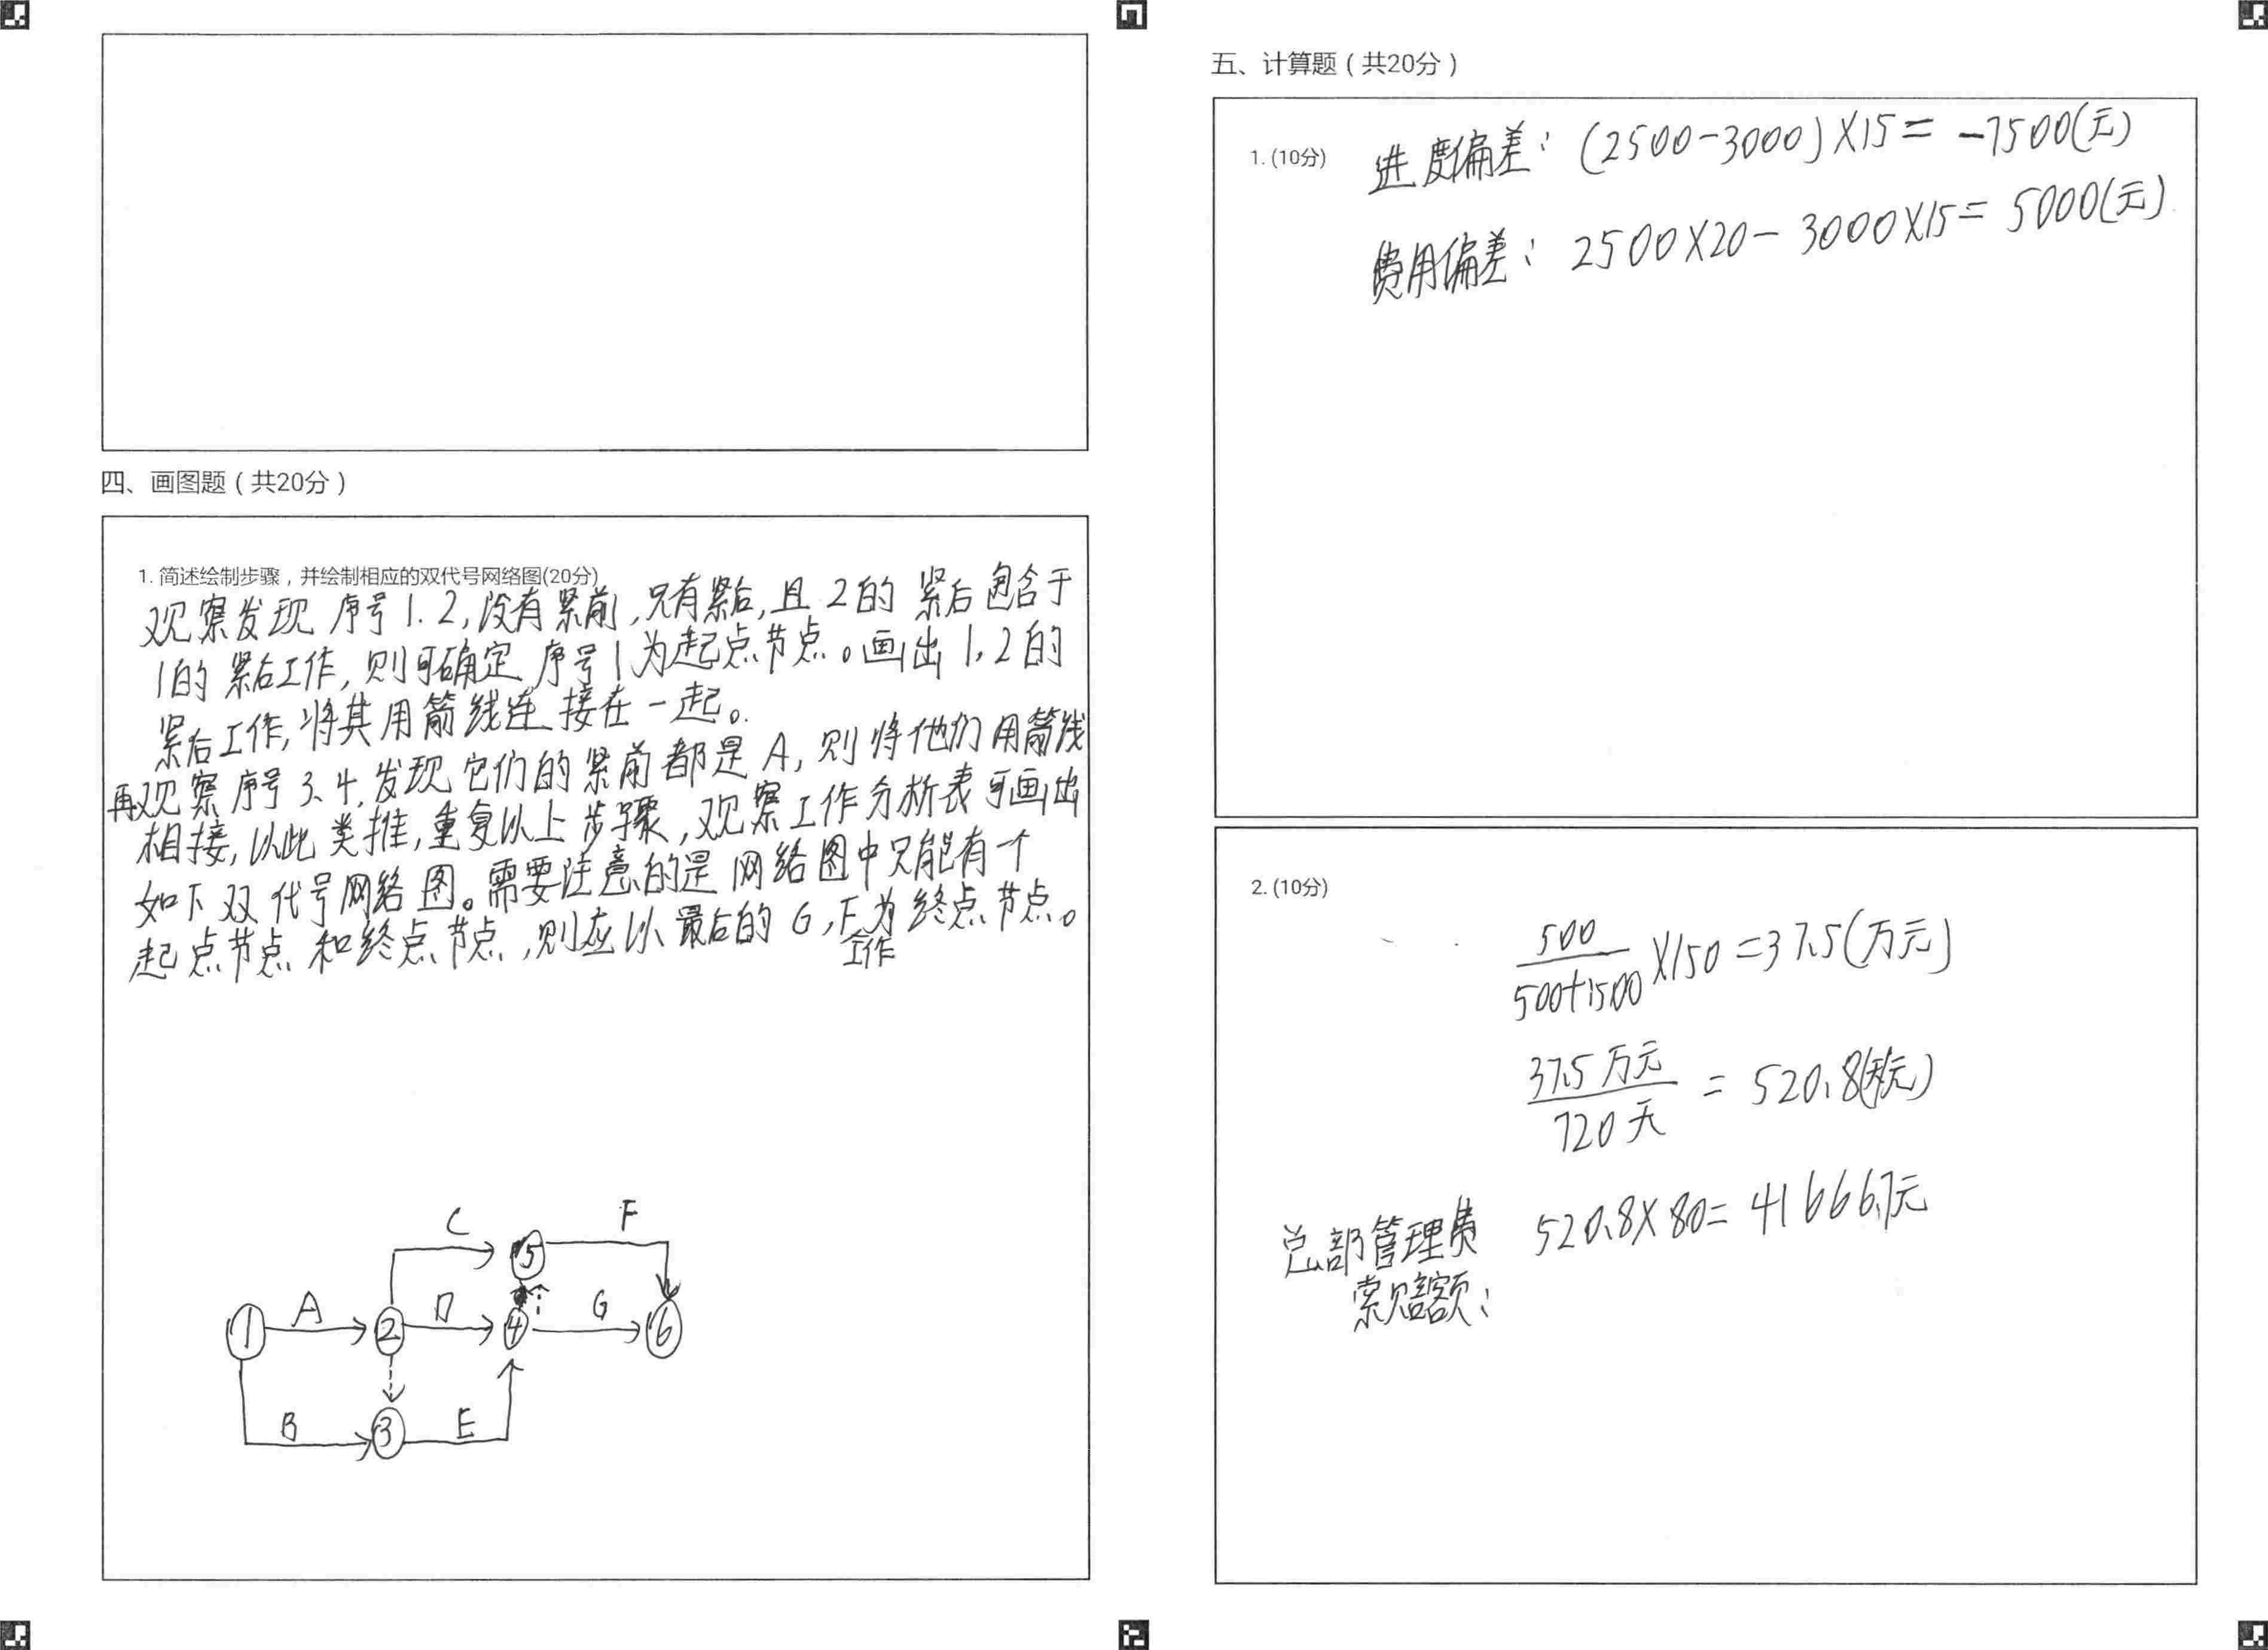 四、画图题（共20分）
1. 简述绘制步骤，并绘制相应的双代号网络图(20分)
观察发现 序号1.2,没有紧前,只有紧后,且2的紧后包含于
1的紧后工作,则可确定序号1为起点节点。画出1,2的
紧后工作,将其用箭线连接在一起。
再观察序号3、4,发现它们的紧前都是A,则将他们用箭线
相接,以此类推,重复以上步骤,观察工作分析表可画出
如下双代号网络图。需要注意的是网络图中只能有一个
起点节点和终点节点,则应以最后的G,F为终点节点。
工作
C
F
5
A
D
G
1
2
4
6
B
3
E
五、计算题（共20分）
1. (10分)
进度偏差: (2500-3000)×15= -7500(元)
费用偏差: 2500×20- 3000×15= 5000(元)
2. (10分)
500/(500+1500) ×150=37.5(万元)
37.5万元/720天 = 520.8(元)
总部管理费 520.8×80= 41666.7元
索赔额: